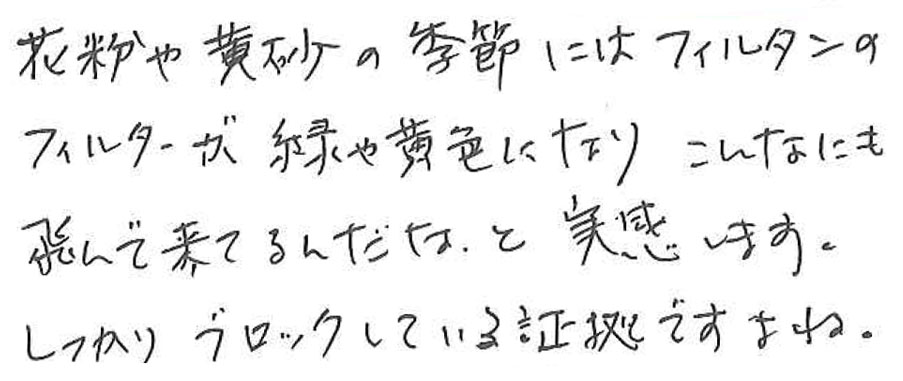 花粉や黄砂の季節にはフィルタンの
フィルターが緑や黄色になり こんなにも
飛んで来てるんだな.と 実感します。
しっかり ブロックしている証拠ですよね。